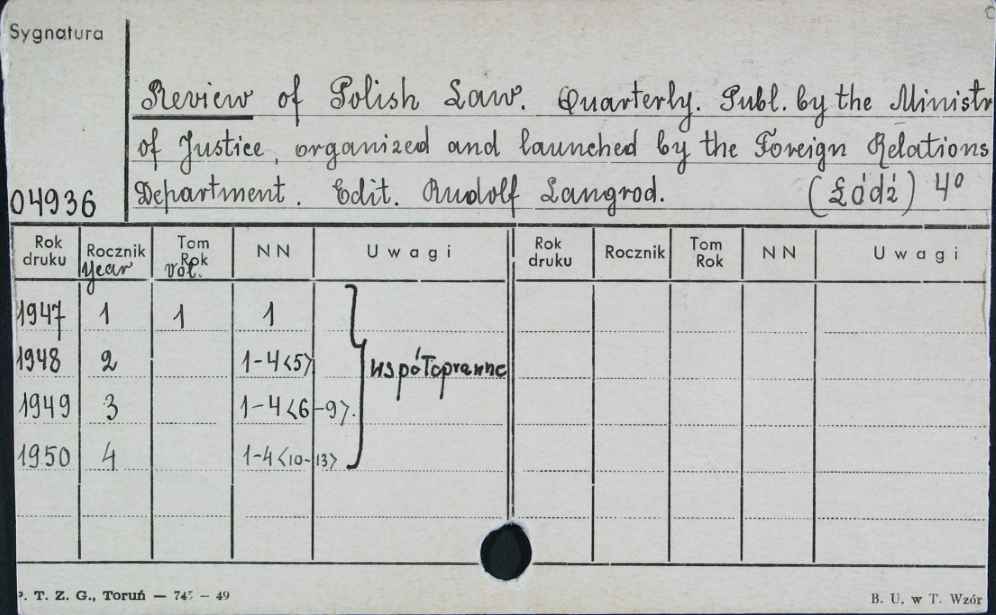 Sygnatura
Review of Polish Law. Quarterly. Publ. by the Ministr
of Justice, organized and launched by the Foreign Relations
04936 Department. Edit. Rudolf Langrod. (Łódź) 4º
Rok druku Rocznik Year Tom Rok vol. NN Uwagi Rok druku Rocznik Tom Rok NN Uwagi
1947 1 1 1
1948 2 1-4<5> współoprawne
1949 3 1-4<6-9>.
1950 4 1-4<10-13>
P. T. Z. G., Toruń — 745 — 49 B. U. w T. Wzór